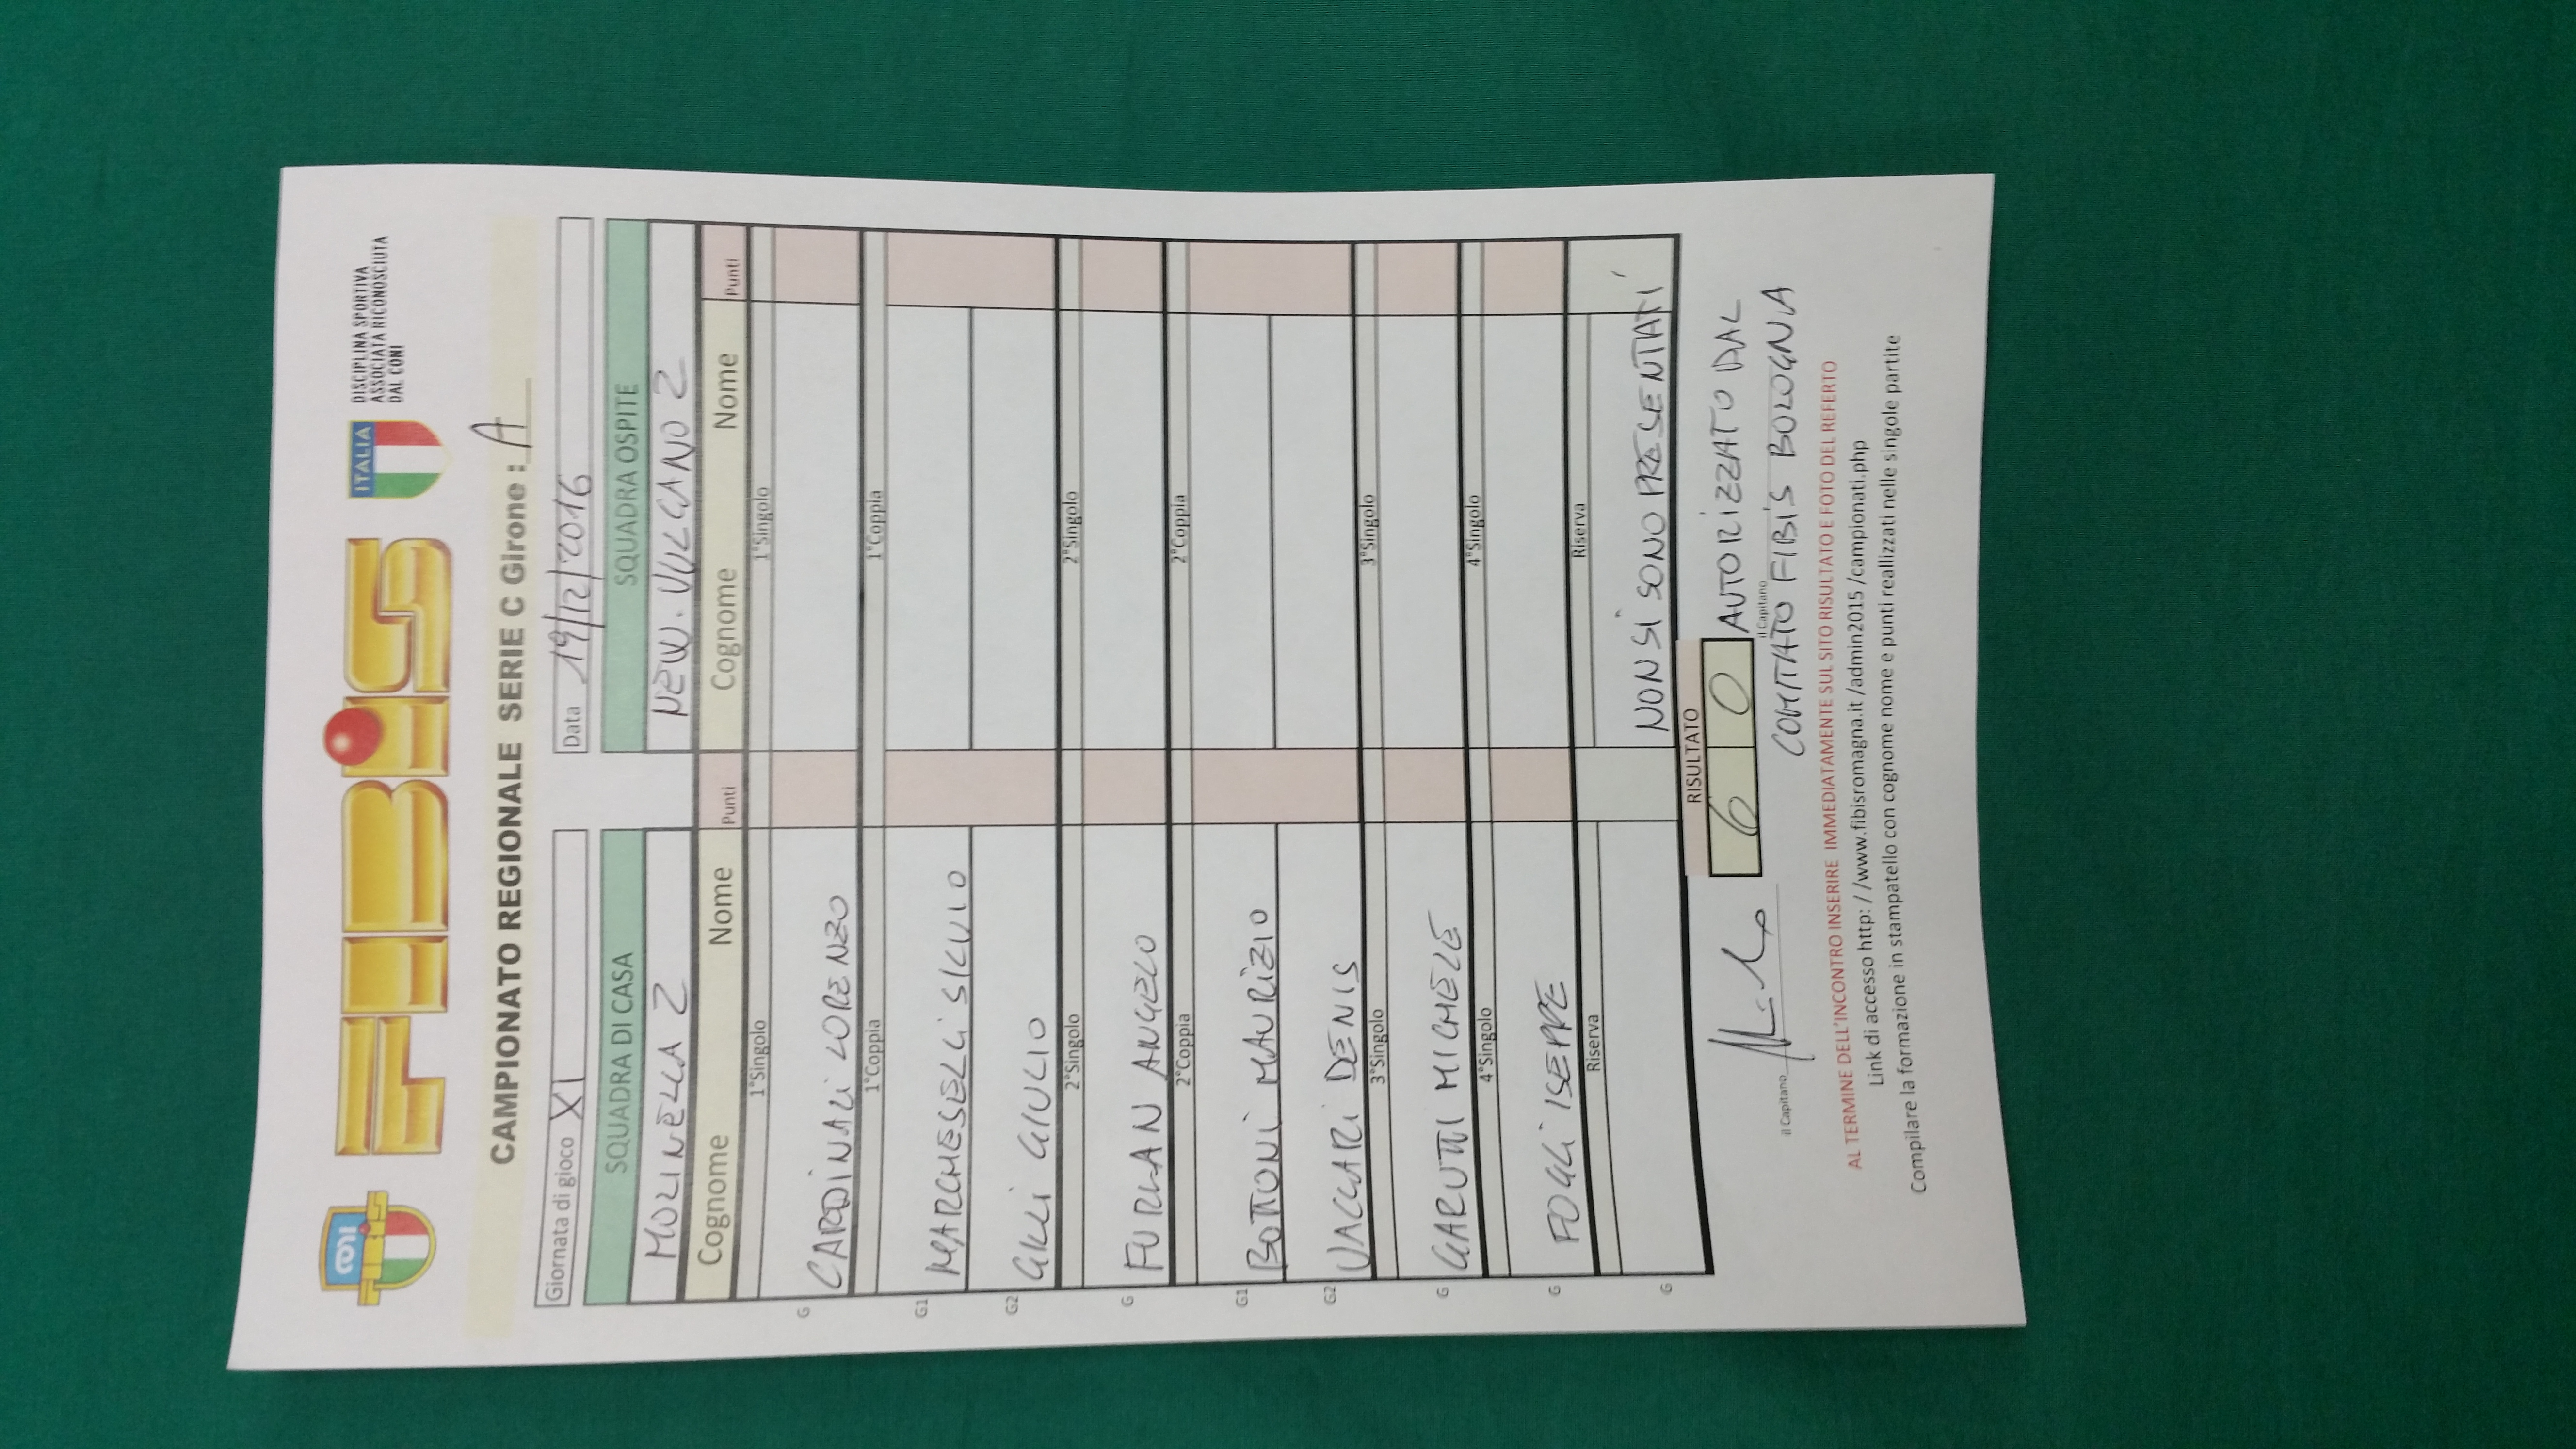 CONI
FIBIS
FIBiS
ITALIA
DISCIPLINA SPORTIVA
ASSOCIATA RICONOSCIUTA
DAL CONI
CAMPIONATO REGIONALE SERIE C Girone : A
Giornata di gioco XI
Data 19/12/2016
SQUADRA DI CASA SQUADRA OSPITE
MOLINELLA 2 NEW. VULCANO 2
Cognome Nome Punti Cognome Nome Punti
1°Singolo 1°Singolo
G CARDINALI LORENZO
1°Coppia 1°Coppia
G1 MARCHESELLI SILVIO
G2 GILLI GIULIO
2°Singolo 2°Singolo
G FURLAN ANGELO
2°Coppia 2°Coppia
G1 BOTTONI MAURIZIO
G2 VACCARI DENIS
3°Singolo 3°Singolo
G GARUTTI MICHELE
4°Singolo 4°Singolo
G FOGLI ISEPPE
Riserva Riserva
G NON SI SONO PRESENTATI
RISULTATO
6 0 AUTORIZZATO DAL
il Capitano il Capitano
COMITATO FIBIS BOLOGNA
AL TERMINE DELL'INCONTRO INSERIRE IMMEDIATAMENTE SUL SITO RISULTATO E FOTO DEL REFERTO
Link di accesso http: / /www.fibisromagna.it /admin2015 /campionati.php
Compilare la formazione in stampatello con cognome nome e punti reallizzati nelle singole partite